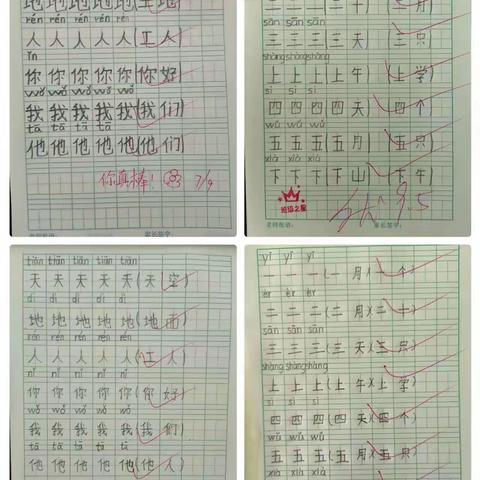 地地地地地(土地)
rén rén rén rén
人人人人人(工人)
nǐ
你你你你你(你好)
wǒ wǒ wǒ wǒ wǒ
我我我我我(我们)
tā tā tā tā
他他他他他(他们)
你真棒! 7/9
sān sān sān
三三三(三天)(三只
shàng shàng shàng
上上上(上午)(上学
sì sì
四四四(四天)(四个
wǔ wǔ wǔ
五五五(五月)(五只
xià xià
下下下(下山)(下午
班级之星
9.5
老师批语: 家长签字:
tiān tiān tiān tiān tiān
天天天天天(天空)
dì dì dì dì
地地地地地(地面)
rén rén rén rén
人人人人人(工人
nǐ nǐ nǐ nǐ
你你你你你(你好)
wǒ wǒ wǒ wǒ
我我我我我(我们)
tā tā tā tā
他他他他他(他人)
yī yī yī
一一一(一月)(一个
èr èr èr
二二二(二月)(二牛
sān sān sān
三三三(三天)(三只
shàng shàng shàng
上上上(上午)(上学
sì sì sì
四四四(四天)(四个
wǔ wǔ wǔ
五五五(五月)(五只
xià xià xià